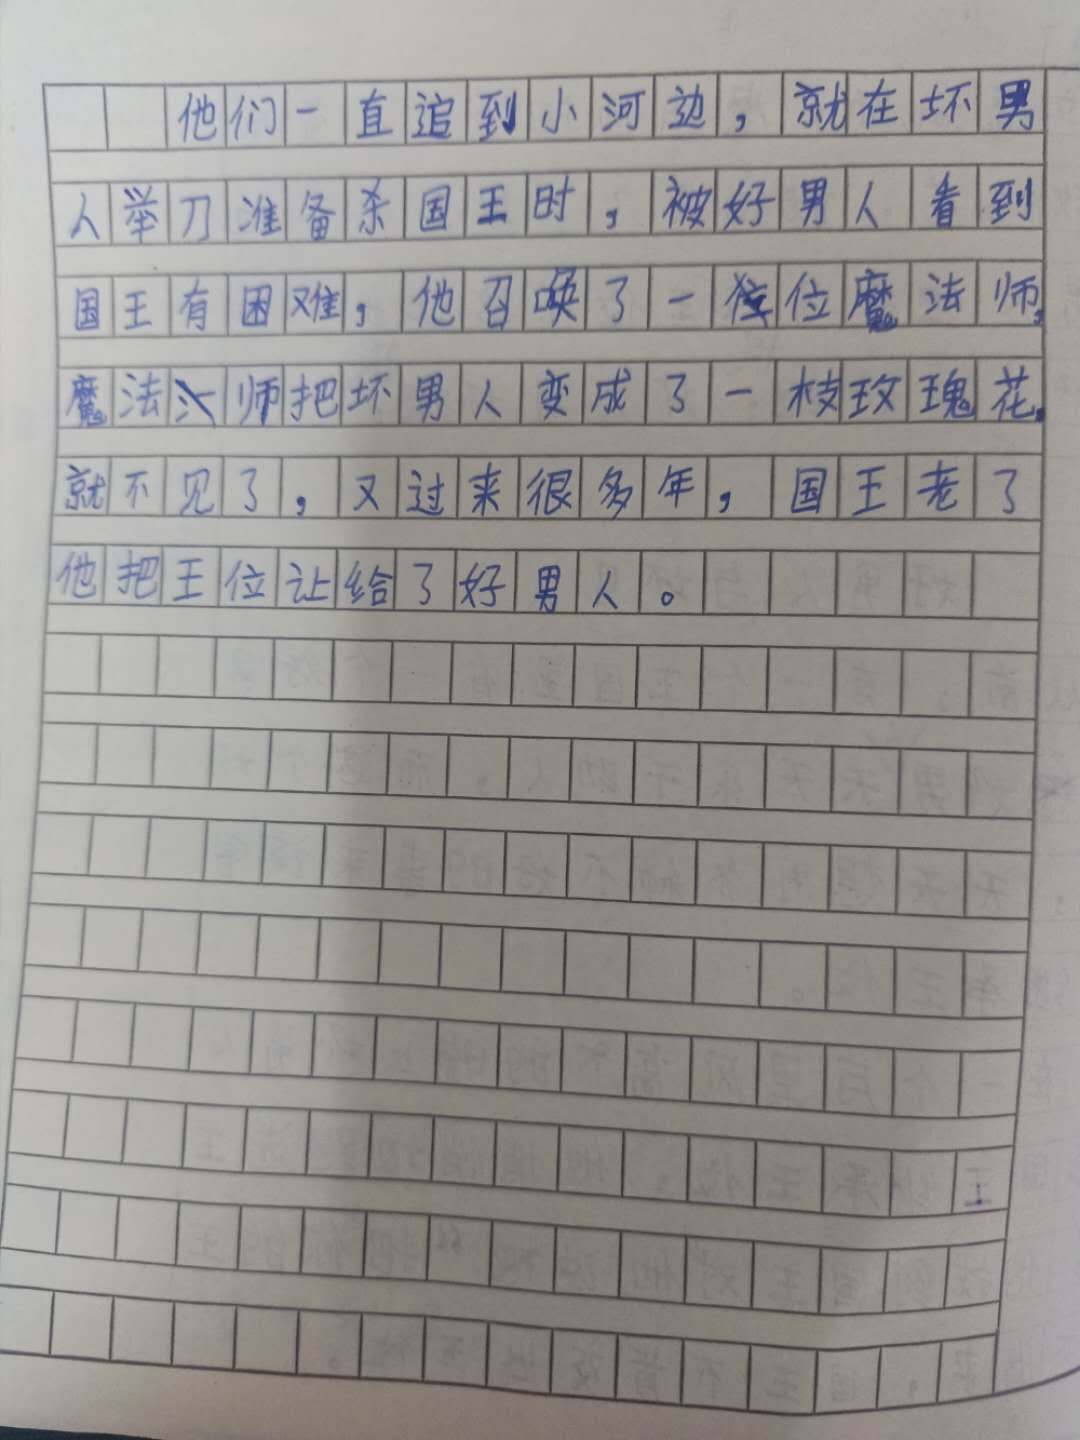 他们一直追到小河边，就在坏男
人举刀准备杀国王时，被好男人看到
国王有困难，他召唤了一位魔法师，
魔法师把坏男人变成了一枝玫瑰花，
就不见了，又过来很多年，国王老了
他把王位让给了好男人。